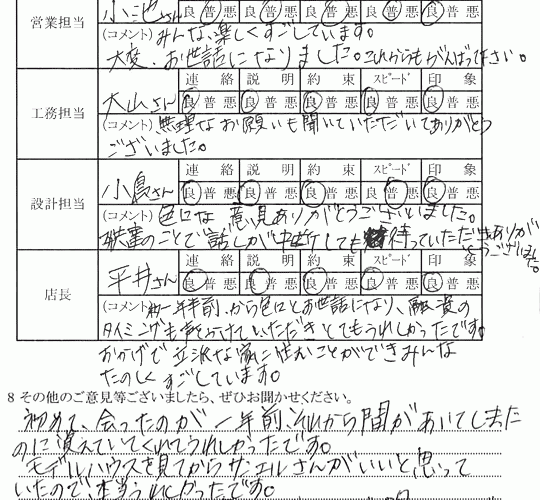 営業担当 小池さん 良 普 悪 良 普 悪 良 普 悪 良 普 悪 良 普 悪
(コメント) みんな、楽しくすごしています。
大変、お世話になりました。これからもがんばって下さい。
連絡 説明 約束 スピード 印象
工務担当 大山さん 良 普 悪 良 普 悪 良 普 悪 良 普 悪 良 普 悪
(コメント) 無理なお願いも聞いていただいてありがとう
ございました。
連絡 説明 約束 スピード 印象
設計担当 小島さん 良 普 悪 良 普 悪 良 普 悪 良 普 悪 良 普 悪
(コメント) 色々な意見ありがとうございました。
のことで話しが中断しても待っていただきありが
とうございました。
連絡 説明 約束 スピード 印象
店長 平井さん 良 普 悪 良 普 悪 良 普 悪 良 普 悪 良 普 悪
(コメント) 約一年半前から色々とお世話になり、融資の
タイミングも声をかけていただきとてもうれしかったです。
おかげで立派な家に住むことができみんな
たのしくすごしています。
8 その他のご意見等ございましたら、ぜひお聞かせください。
初めて、会ったのが一年前、それから間があいてしまった
のに覚えていてくれてうれしかったです。
モデルハウスを見てからサンエルさんがいいと思って
いたので、本当うれしかったです。